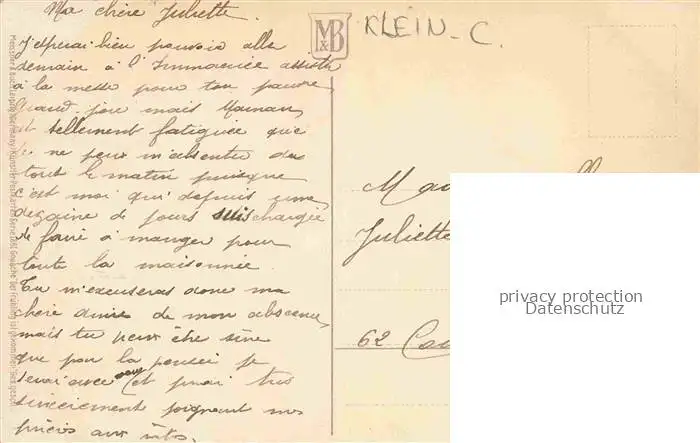 Ma chère Juliette.
J'espérai bien pouvoir aller
demain à l'Immaculée assister
à la messe pour ton pauvre
Grand-père mais Maman
est tellement fatiguée que
je ne peux m'absenter de
tout le matin puisque
c'est moi qui depuis une
dizaine de jours suis chargée
de faire à manger pour
toute la maisonnée.
Tu m'excuseras donc ma
chère amie de mon absence,
mais tu peux être sûre
que par la pensée je
serai avec vous et prierai très
sincèrement joignant mes
prières aux vôtres.
M&B
KLEIN-C.
Juliette
62
privacy protection
Datenschutz